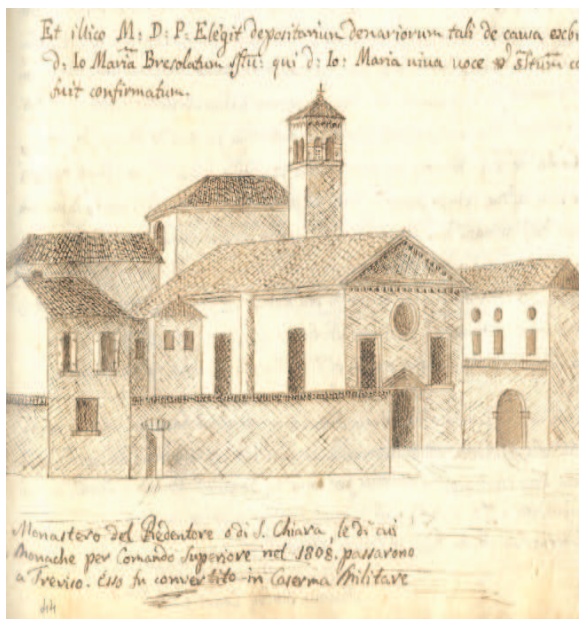 Et illico M: D: P: Elegit depositarium denariorum tali de causa
d: Io Maria Bresolatum qui d: Io: Maria viva voce
fuit confirmatum.
Monastero del Redentore o di S. Chiara, le di cui
Monache per Comando Superiore nel 1808. passarono
a Treviso. Esso fu convertito in Caserma Militare
44